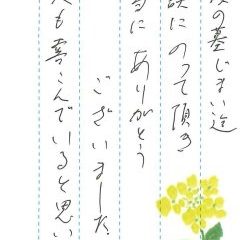 の墓じまい迄
にのって頂き
にありがとう
ございました。
も喜こんでいると思い